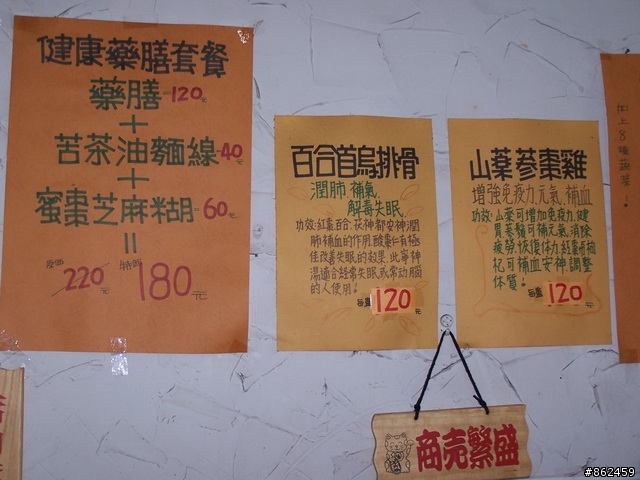 健康藥膳套餐
藥膳 120元
+
苦茶油麵線 40
+
蜜棗芝麻糊 60元
=
原価 220元 特価 180元
百合首烏排骨
潤肺 補氣
解毒失眠
功效:紅棗.百合.茯神都安神潤
肺補血的作用.酸棗仁有極
佳改善失眠的效果.此寧神
湯適合經常失眠或常動腦
的人使用!
120
山藥蔘棗雞
增強免疫力.元氣.補血
功效:山藥可增加免疫力.健
胃.蔘鬚可補元氣.消除
疲勞.恢復体力.紅棗.枸
杞可補血安神.調整
体質!
120
加上8種蔬菜!
商売繁盛
#862459